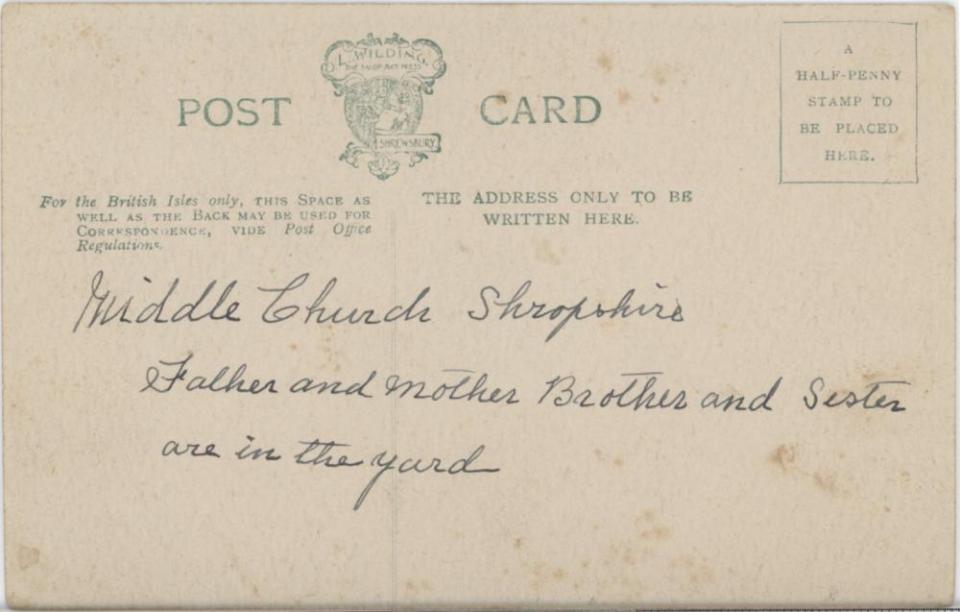 L. WILDING.
SHREWSBURY
POST CARD
A
HALF-PENNY
STAMP TO
BE PLACED
HERE.
For the British Isles only, THIS SPACE AS
WELL AS THE BACK MAY BE USED FOR
CORRESPONDENCE, VIDE Post Office
Regulations.
THE ADDRESS ONLY TO BE
WRITTEN HERE.
Middle Church Shropshire
Father and Mother Brother and Sister
are in the yard